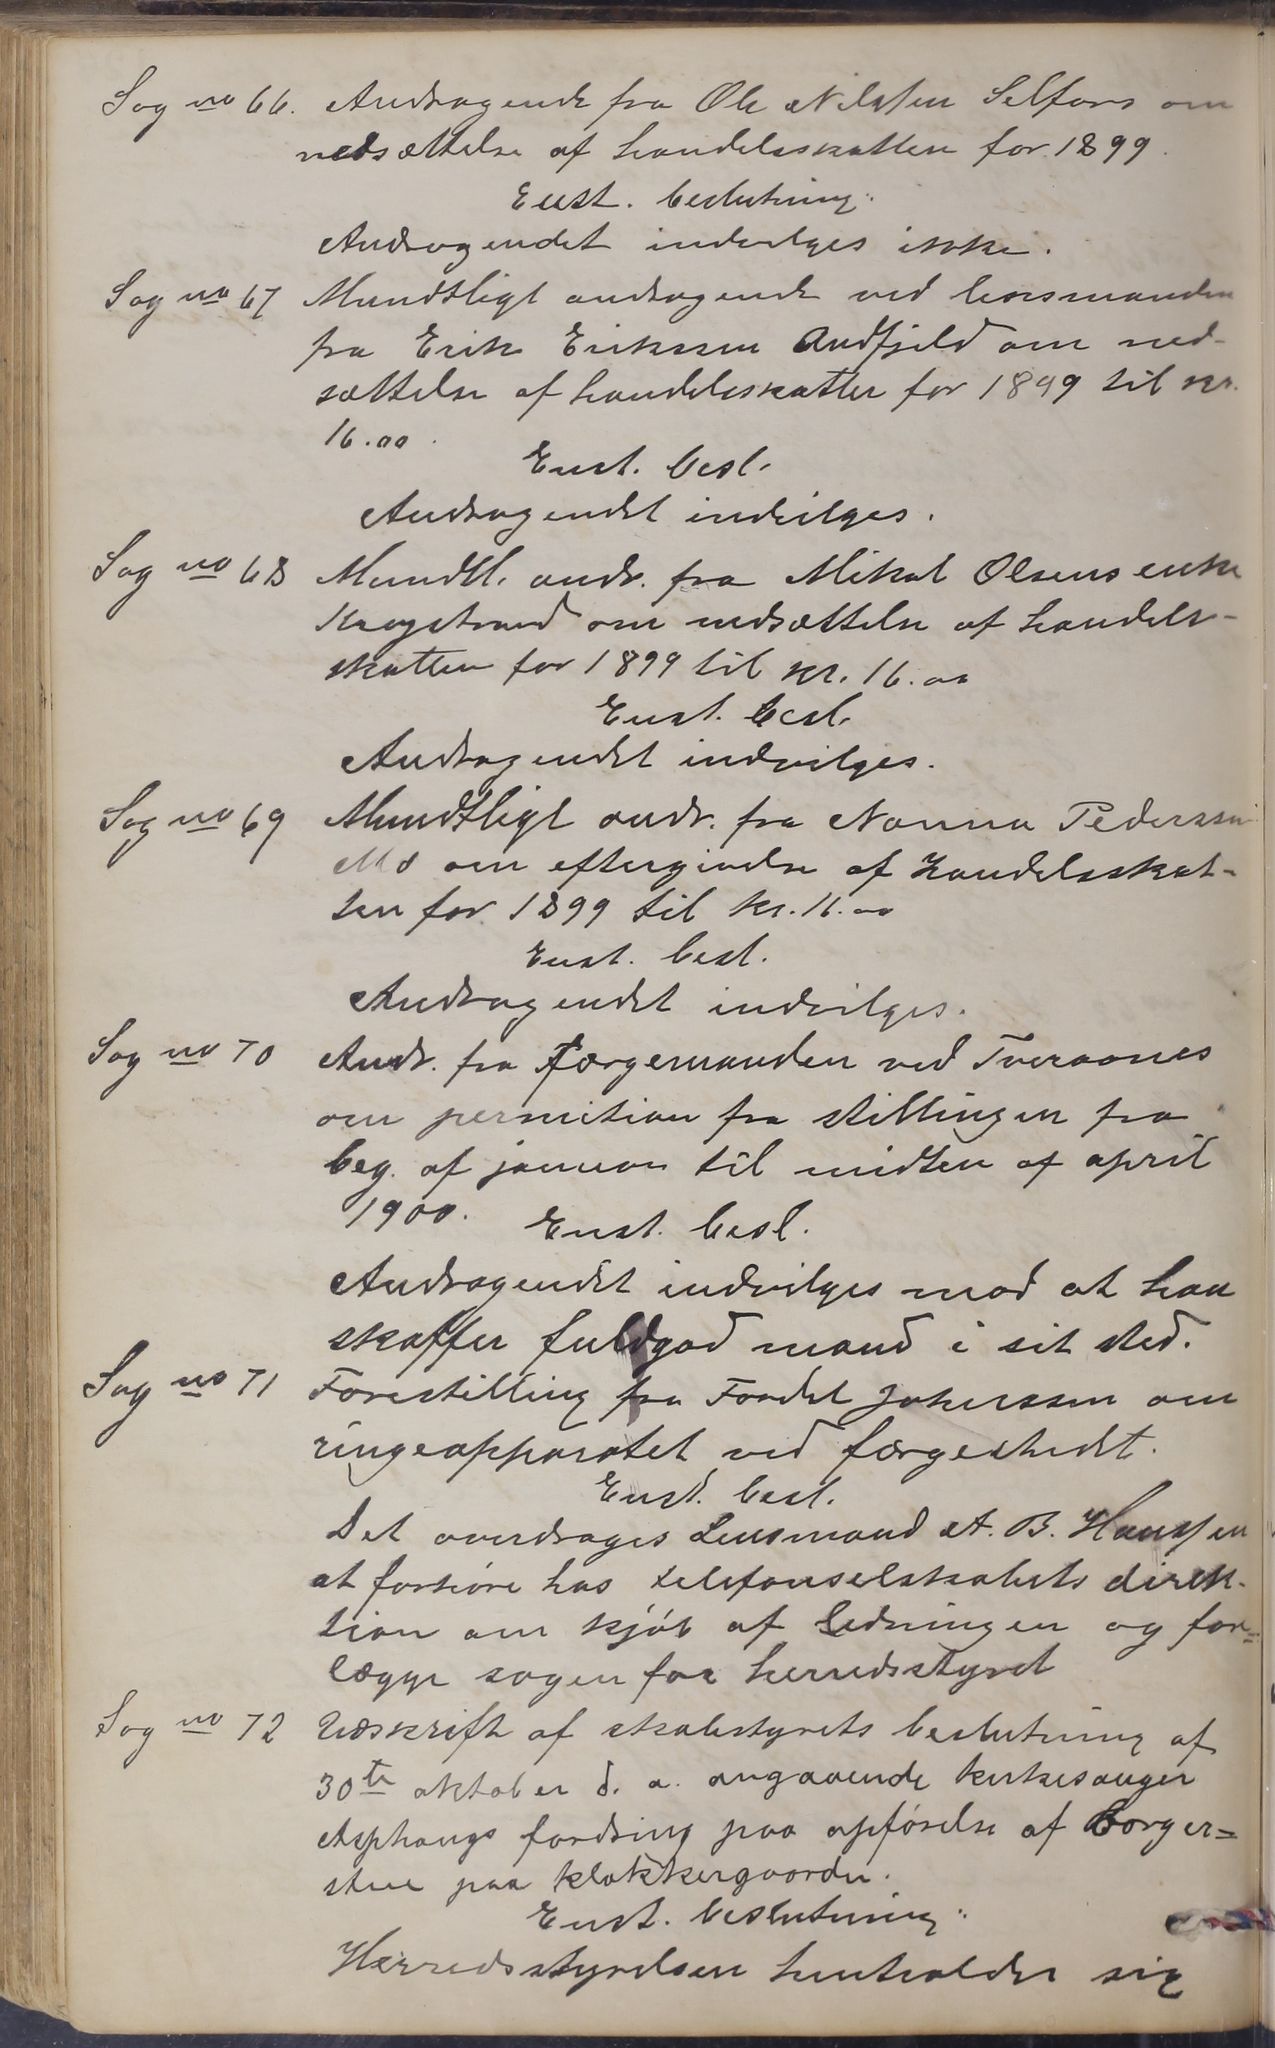 Sag no 66. Andragende fra Ole Nilssen Selfors om
nedsættelse af handelsskatten for 1899.
Enst. beslutning:
Andragendet indvilges ikke.
Sag no 67 Mundtligt andragende ved lensmanden
fra Erik Erikssen Andfjeld om ned-
sættelse af handelsskatten for 1899 til kr.
16.00.
Enst. besl.
Andragendet indvilges.
Sag no 68 Mundtl. andr. fra Mikal Olsens enke
Kragstrand om nedsættelse af handels-
skatten for 1899 til kr. 16.00
Enst. besl.
Andragendet indvilges.
Sag no 69 Mundtligt andr. fra Nanna Pederssen
Mo om eftergivelse af Handelsskat-
ten for 1899 til kr. 16.00
Enst. besl.
Andragendet indvilges.
Sag no 70 Andr. fra Færgemanden ved Tveraanes
om permition fra stillingen fra
beg. af januar til midten af april
1900. Enst. besl.
Andragendet indvilges mod at han
skaffer fuldgod mand i sit sted.
Sag no 71 Forestilling fra Fordel Johanssen om
ringeapparatet ved færgestedet.
Enst. besl.
Det overdrages Lensmand A. B. Hanssen
at forhøre hos telefonselskabets direk-
tion om kjøb af ledningen og fore-
lægge sagen for herredsstyret
Sag no 72 Udskrift af skolestyrets beslutning af
30te oktober d. a. angaaende kirkesanger
Asphaugs fordring paa opførelse af Borger-
stue paa klokkergaarden.
Enst. beslutning:
Herredsstyrelsen henholder sig